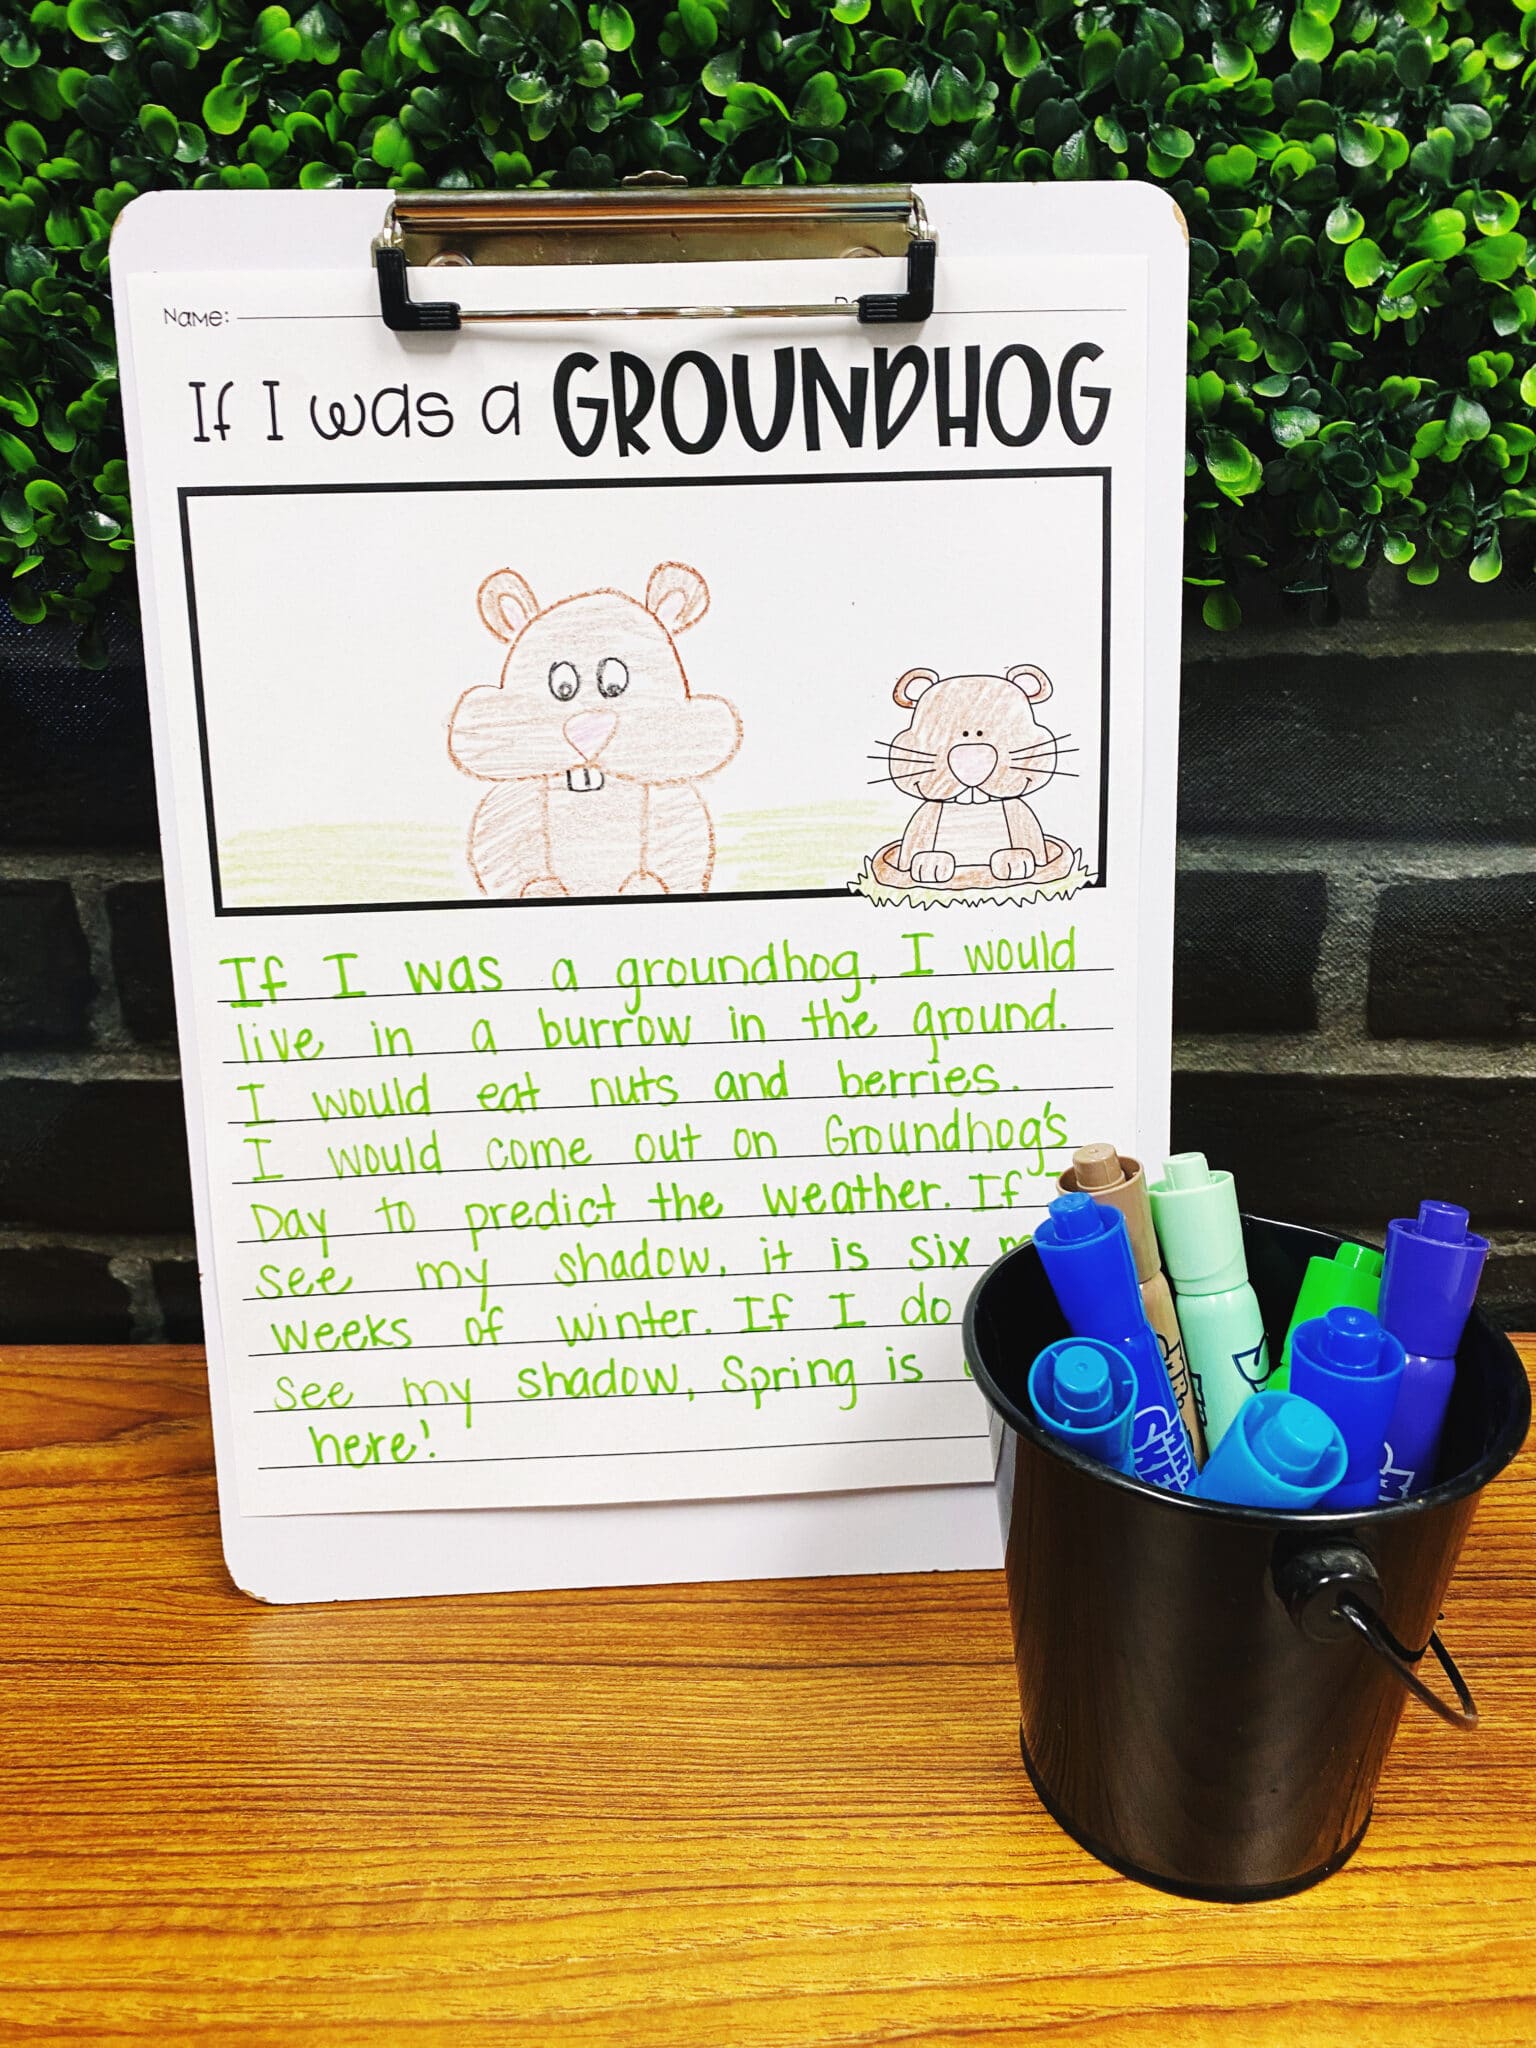 Name:
If I was a GROUNDHOG
If I was a groundhog, I would
live in a burrow in the ground.
I would eat nuts and berries.
I would come out on Groundhog's
Day to predict the weather. If
see my shadow, it is six
weeks of winter. If I do
see my shadow, Spring is
here!